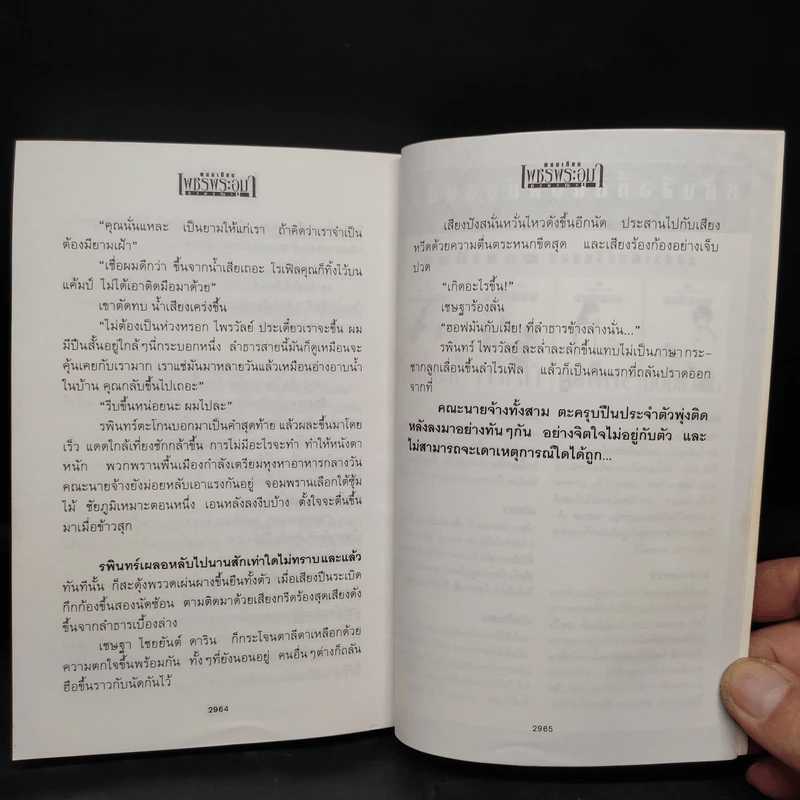 พนมเทียน
เพชรพระอุมา
“คุณนั่นแหละ เป็นยามให้แก่เรา ถ้าคิดว่าเราจำเป็น
ต้องมียามเฝ้า”
“เชื่อผมดีกว่า ขึ้นจากน้ำเสียเถอะ ไรเฟิลคุณก็ทิ้งไว้บน
แค้มป์ ไม่ได้เอาติดมือมาด้วย”
เขาตัดทบ น้ำเสียงเคร่งขึ้น
“ไม่ต้องเป็นห่วงหรอก ไพรวัลย์ ประเดี๋ยวเราจะขึ้น ผม
มีปืนสั้นอยู่ใกล้ๆนี่กระบอกหนึ่ง ลำธารสายนี้มันก็ดูเหมือนจะ
คุ้นเคยกับเรามาก เราแช่มันมาหลายวันแล้วเหมือนอ่างอาบน้ำ
ในบ้าน คุณกลับขึ้นไปเถอะ”
“รีบขึ้นหน่อยนะ ผมไปละ”
รพินทร์ตะโกนบอกมาเป็นคำสุดท้าย แล้วผละขึ้นมาโดย
เร็ว แดดใกล้เที่ยงชักกล้าขึ้น การไม่มีอะไรจะทำ ทำให้หนังตา
หนัก พวกพรานพื้นเมืองกำลังเตรียมหุงหาอาหารกลางวัน
คณะนายจ้างยังม่อยหลับเอาแรงกันอยู่ จอมพรานเลือกใต้ซุ้ม
ไม้ ชัยภูมิเหมาะตอนหนึ่ง เอนหลังลงงีบบ้าง ตั้งใจจะตื่นขึ้น
มาเมื่อข้าวสุก
รพินทร์เผลอหลับไปนานสักเท่าใดไม่ทราบ และแล้ว
ทันทีนั้น ก็สะดุ้งพรวดเผ่นผางขึ้นยืนทั้งตัว เมื่อเสียงปืนระเบิด
กึกก้องขึ้นสองนัดซ้อน ตามติดมาด้วยเสียงกรีดร้องสุดเสียงดัง
ขึ้นจากลำธารเบื้องล่าง
เชษฐา ไชยยันต์ ดาริน ก็กระโจนตาลีตาเหลือกด้วย
ความตกใจขึ้นพร้อมกัน ทั้งๆที่ยังนอนอยู่ คนอื่นๆต่างก็ถลัน
ฮือขึ้นราวกับนัดกันไว้
2964
พนมเทียน
เพชรพระอุมา
เสียงปังสนั่นหวั่นไหวดังขึ้นอีกนัด ประสานไปกับเสียง
หวีดด้วยความตื่นตระหนกขีดสุด และเสียงร้องก้องอย่างเจ็บ
ปวด
“เกิดอะไรขึ้น!”
เชษฐาร้องลั่น
“ฮอฟมันกับเมีย! ที่ลำธารข้างล่างนั่น...”
รพินทร์ ไพรวัลย์ ละล่ำละลักขึ้นแทบไม่เป็นภาษา กระ-
ชากลูกเลื่อนขึ้นลำไรเฟิล แล้วก็เป็นคนแรกที่ถลันปราดออก
จากที่
คณะนายจ้างทั้งสาม ตะครุบปืนประจำตัวพุ่งติด
หลังลงมาอย่างทันๆกัน อย่างจิตใจไม่อยู่กับตัว และ
ไม่สามารถจะเดาเหตุการณ์ใดได้ถูก...
2965